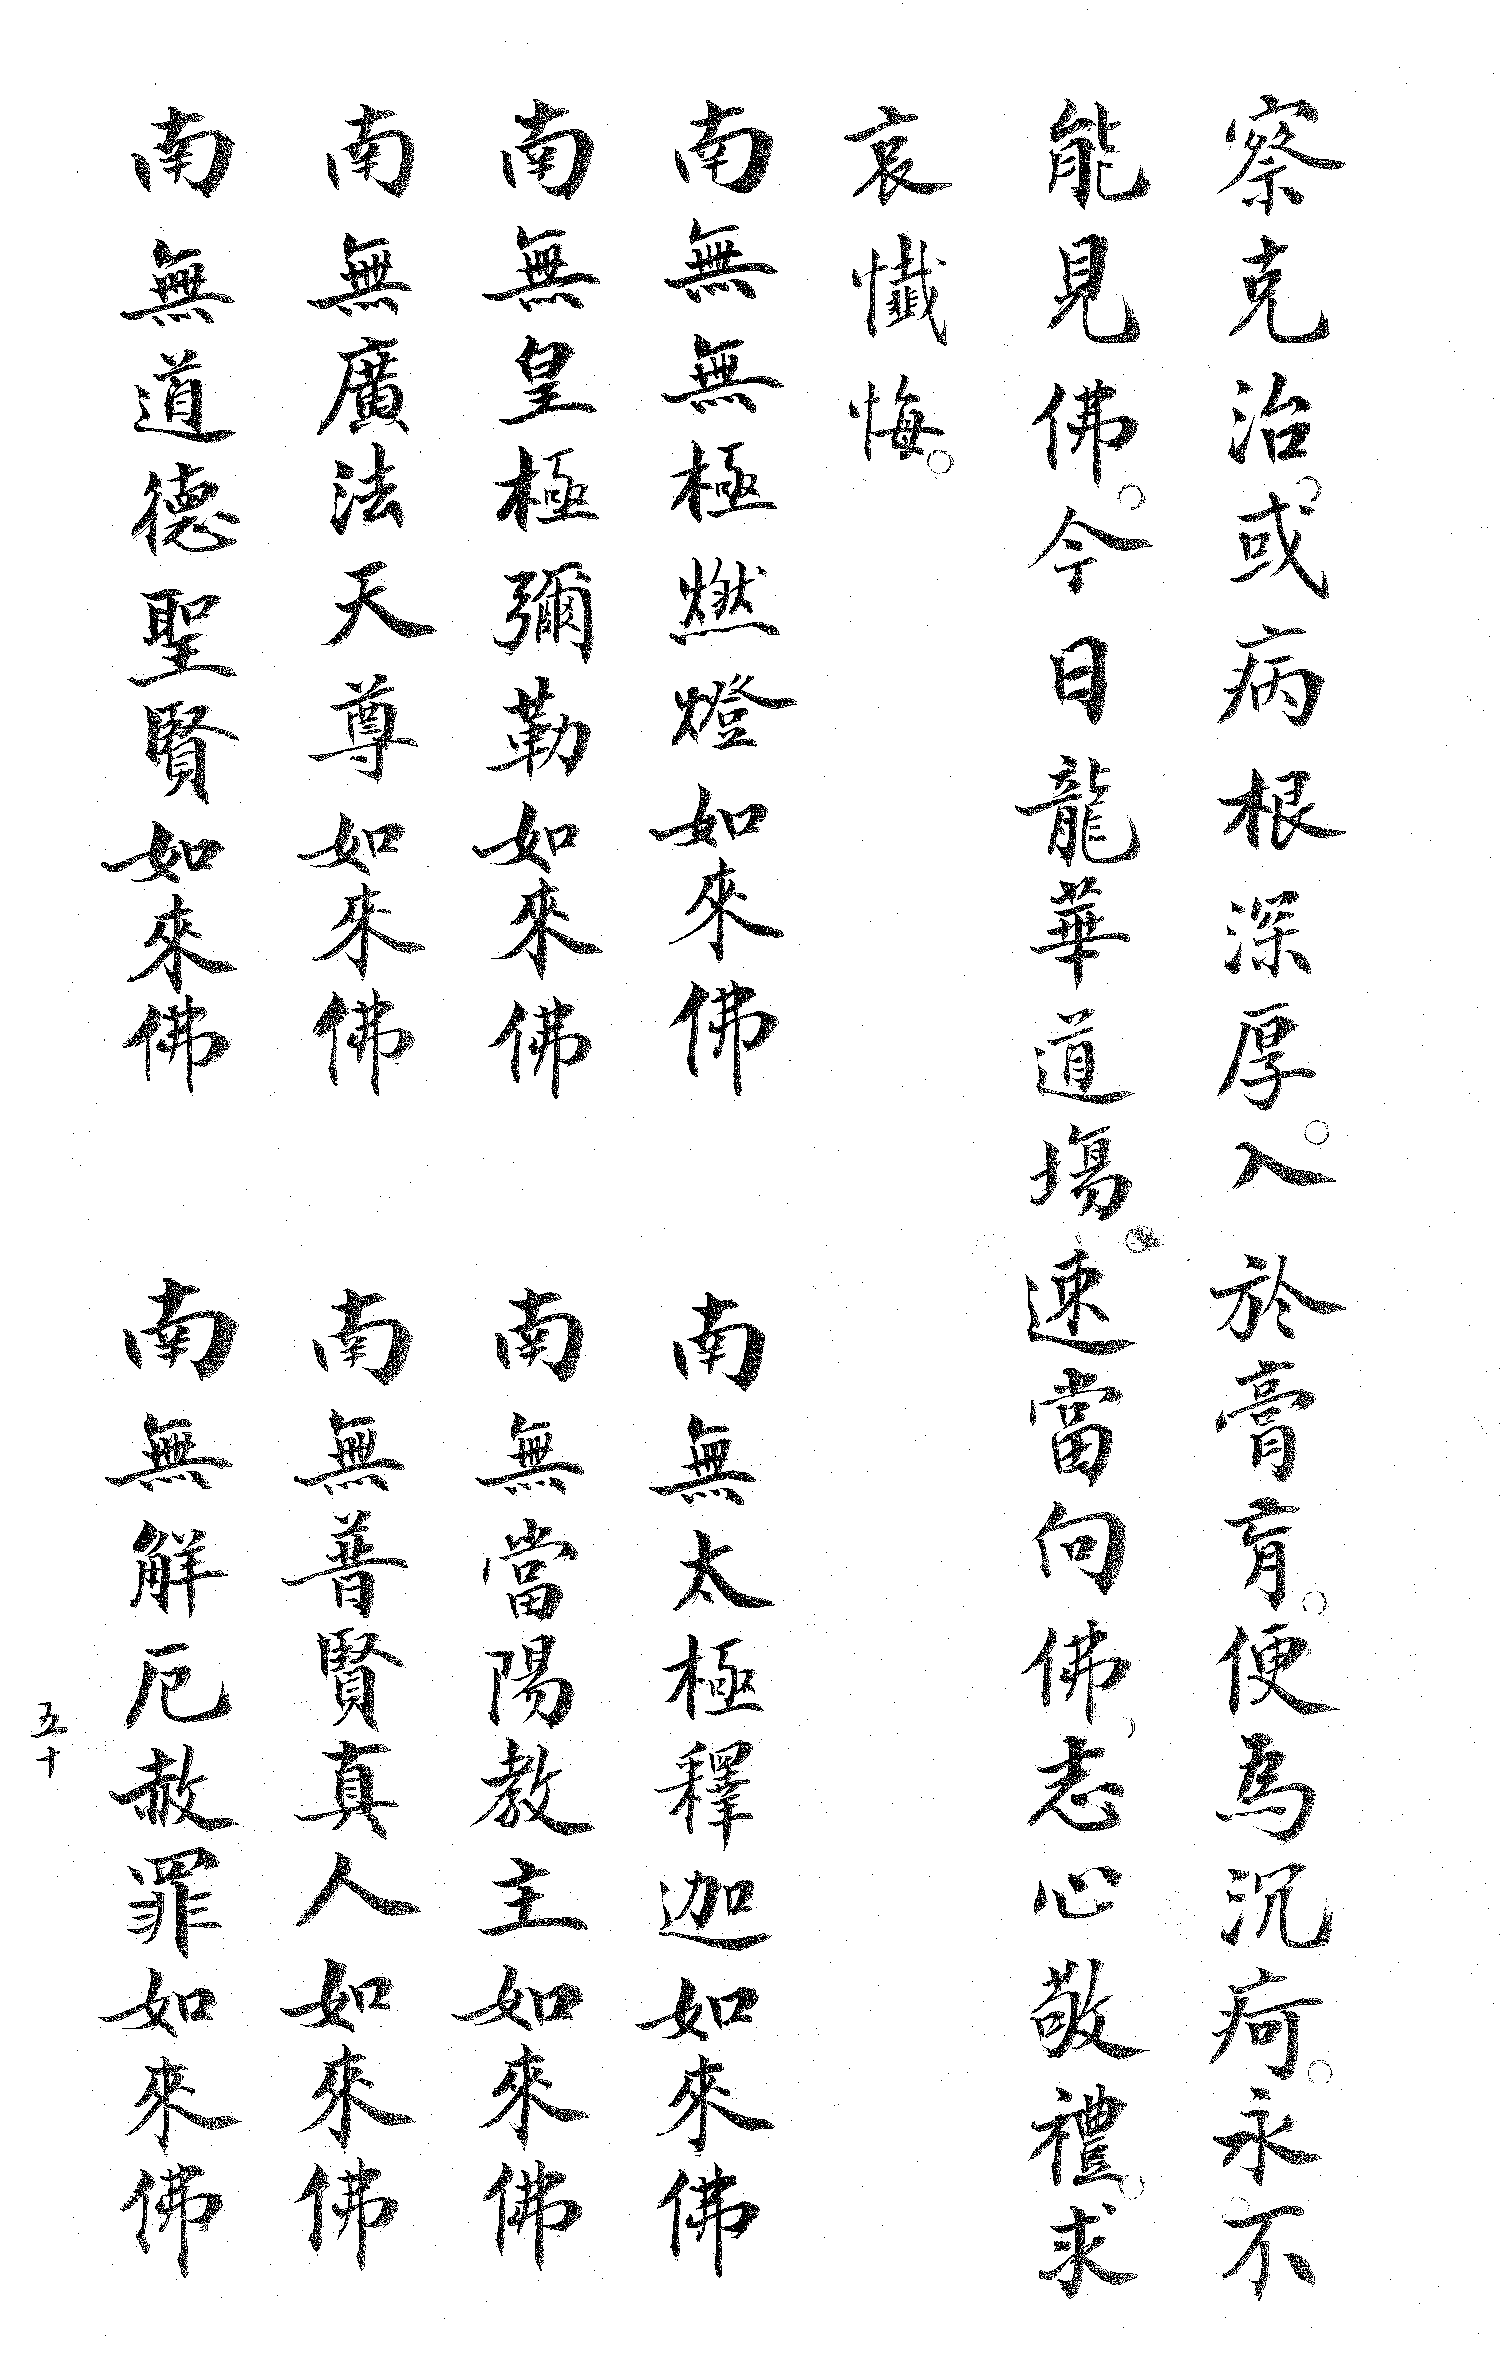 察克治。或病根深厚。入於膏肓。便為沉疴。永不
能見佛。今日龍華道塲。速當向佛、志心敬禮。求
哀懺悔。
南無無極燃燈如來佛　南無太極釋迦如來佛
南無皇極彌勒如來佛　南無當陽教主如來佛
南無廣法天尊如來佛　南無普賢真人如來佛
南無道德聖賢如來佛　南無解厄赦罪如來佛
五十